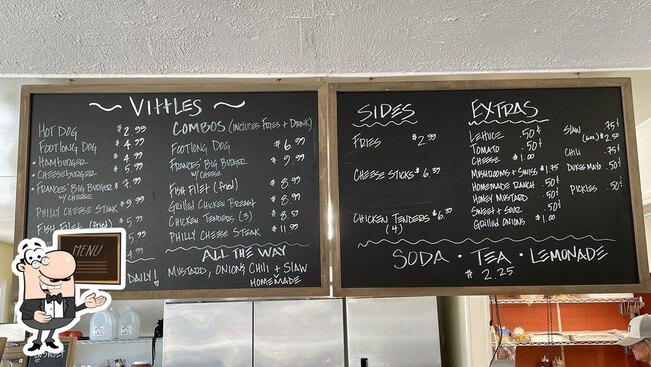 VITTLES
HOT DOG $2.99
FOOTLONG DOG $4.99
HAMBURGER 4.99
CHEESEBURGER $5.99
FRANCES' BIG BURGER $7.99
W/ CHEESE
PHILLY CHEESE STEAK $9.99
FISH FILET (fried) 5.99
5.99
4.99
DAILY!
COMBOS (INCLUDES FRIES + DRINK)
FOOTLONG DOG $6.99
FRANCES' BIG BURGER $9.99
W/ CHEESE
FISH FILET (fried) $8.99
GRILLED CHICKEN BREAST $8.99
CHICKEN TENDERS (3) $8.57
PHILLY CHEESE STEAK $11.99
ALL THE WAY
MUSTARD, ONIONS, CHILI + SLAW
HOMEMADE
SIDES
FRIES $2.99
CHEESE STICKS $6.39
CHICKEN TENDERS $6.39
(4)
EXTRAS
LETTUCE .50¢
TOMATO .50¢
CHEESE $1.00
MUSHROOMS + SWISS $1.75
HOMEMADE RANCH .50¢
HONEY MUSTARD .50¢
SWEET + SOUR .50¢
GRILLED ONIONS $1.00
SLAW .75¢
$2.50
CHILI .75¢
DUKES MAYO .50¢
PICKLES .50¢
SODA • TEA • LEMONADE
$2.25
MENU